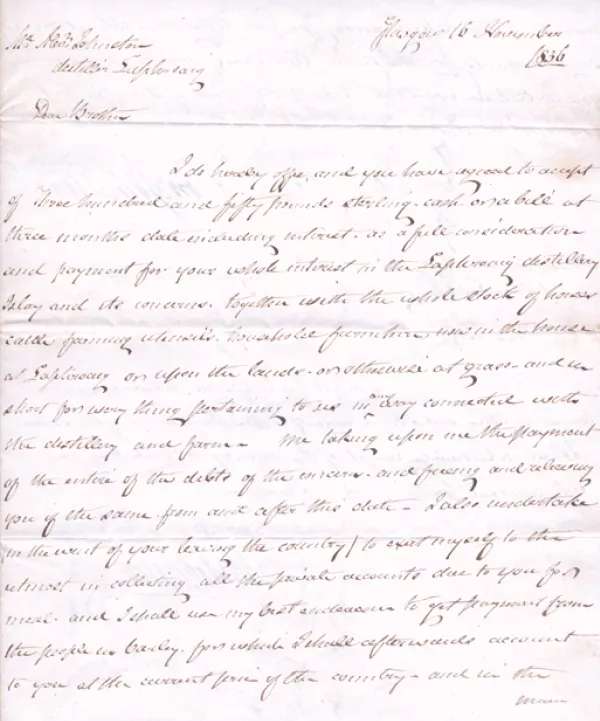 Glasgow 16 November
1836
Mr Alexr Johnston
distiller Laphroaig
Dear Brother
I do hereby offer, and you have agreed to accept
of Three hundred and fifty pounds sterling. cash. or a bill at
three months date including interest. as a full consideration
and payment for your whole interest in the Laphroaig distillery
Islay and its concerns. together with the whole stock of horses
cattle farming utensils. household furniture, now in the house
at Laphroaig or upon the lands. or otherwise at grass. and in
short for every thing pertaining to us in any way connected with
the distillery and farm - Me taking upon me the payment
of the entire of the debts of the concern. and freeing and relieving
you of the same. from and after this date - I also undertake
(in the event of your leaving the country) to exert myself to the
utmost in collecting all the private accounts due to you for
meal. and I shall use my best endeavour to get payment from
the people in barley. for which I shall afterwards account
to you at the current price of the country - and in the
mean